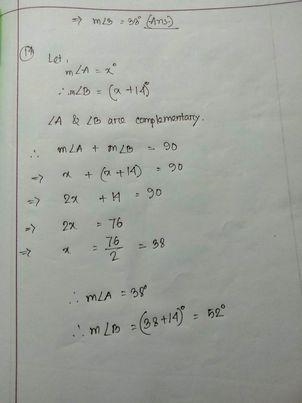 => m∠B = 38° (Ans:)
(19) Let,
m∠A = x°
∴ m∠B = (x + 14)°
∠A & ∠B are complementary.
∴ m∠A + m∠B = 90
=> x + (x + 14) = 90
=> 2x + 14 = 90
=> 2x = 76
=> x = 76/2 = 38
∴ m∠A = 38°
∴ m∠B = (38+14)° = 52°